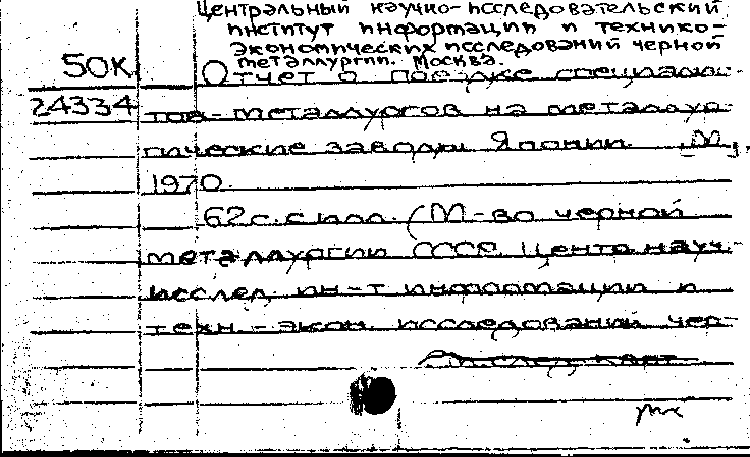 Центральный научно-исследовательский
институт информации и технико-
экономических исследований черной
металлургии. Москва.
50К
Отчет о поездке специалис-
24334
тов-металлургов на металлур-
гические заводы Японии. М.,
1970.
62 с. с илл. (М-во черной
металлургии СССР. Центр. науч.-
исслед. ин-т информации и
техн.-экон. исследований чер-
См. след. карт.